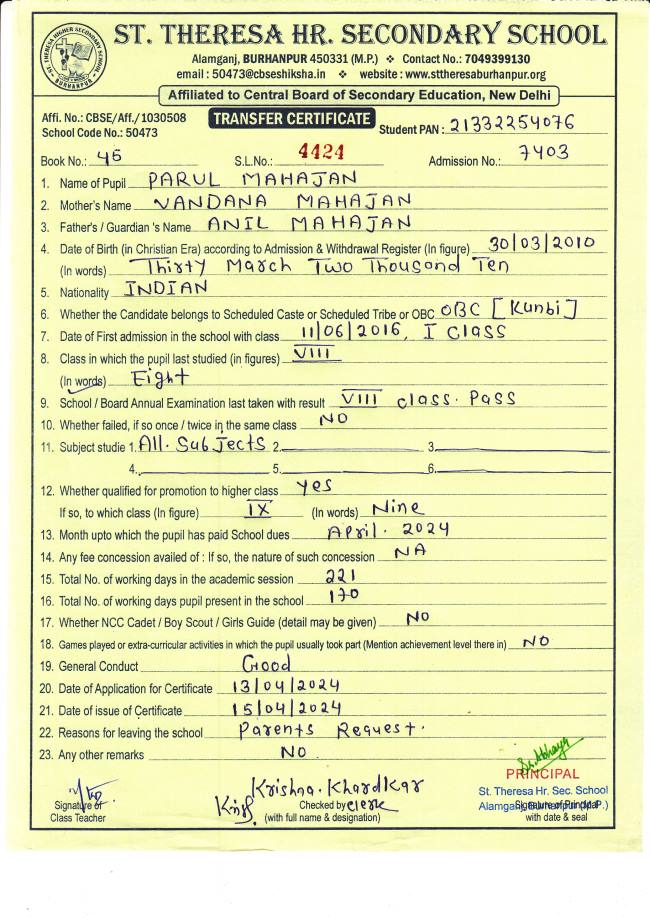 ST. THERESA HR. SECONDARY SCHOOL
Alamganj, BURHANPUR 450331 (M.P.) ❖ Contact No.: 7049399130
email : 50473@cbseshiksha.in ❖ website : www.sttheresaburhanpur.org
Affiliated to Central Board of Secondary Education, New Delhi
Affi. No.: CBSE/Aff./1030508
School Code No.: 50473
TRANSFER CERTIFICATE
Student PAN : 21332254076
Book No.: 45 S.L.No.: 4424 Admission No.: 7403
1. Name of Pupil PARUL MAHAJAN
2. Mother's Name VANDANA MAHAJAN
3. Father's / Guardian 's Name ANIL MAHAJAN
4. Date of Birth (in Christian Era) according to Admission & Withdrawal Register (In figure) 30/03/2010
(In words) Thirty March Two Thousand Ten
5. Nationality INDIAN
6. Whether the Candidate belongs to Scheduled Caste or Scheduled Tribe or OBC OBC [Kunbi]
7. Date of First admission in the school with class 11/06/2016, I class
8. Class in which the pupil last studied (in figures) VIII
(In words) Eight
9. School / Board Annual Examination last taken with result VIII class. Pass
10. Whether failed, if so once / twice in the same class NO
11. Subject studie 1. All. Subjects 2. 3.
4. 5. 6.
12. Whether qualified for promotion to higher class yes
If so, to which class (In figure) IX (In words) Nine
13. Month upto which the pupil has paid School dues April. 2024
14. Any fee concession availed of : If so, the nature of such concession NA
15. Total No. of working days in the academic session 221
16. Total No. of working days pupil present in the school 170
17. Whether NCC Cadet / Boy Scout / Girls Guide (detail may be given) NO
18. Games played or extra-curricular activities in which the pupil usually took part (Mention achievement level there in) NO
19. General Conduct Good
20. Date of Application for Certificate 13/04/2024
21. Date of issue of Certificate 15/04/2024
22. Reasons for leaving the school Parents Request.
23. Any other remarks NO.
PRINCIPAL
St. Theresa Hr. Sec. School
Alamganj, Burhanpur (M.P.)
Signature of Principal
with date & seal
Krishna. Khardkar
Signature of
Class Teacher
Checked by clerk
(with full name & designation)